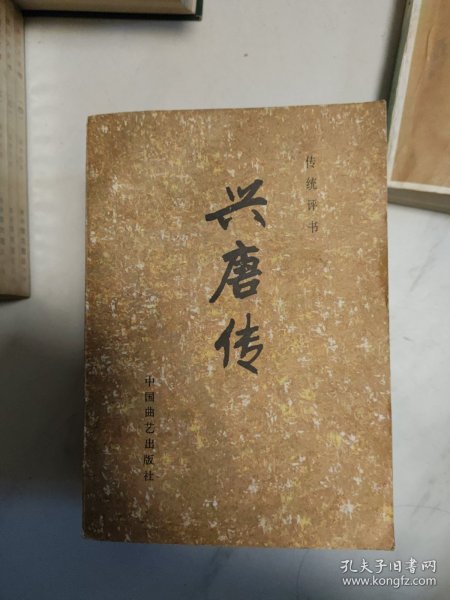 传统评书
兴唐传
中国曲艺出版社
孔夫子旧书网
www.kongfz.com